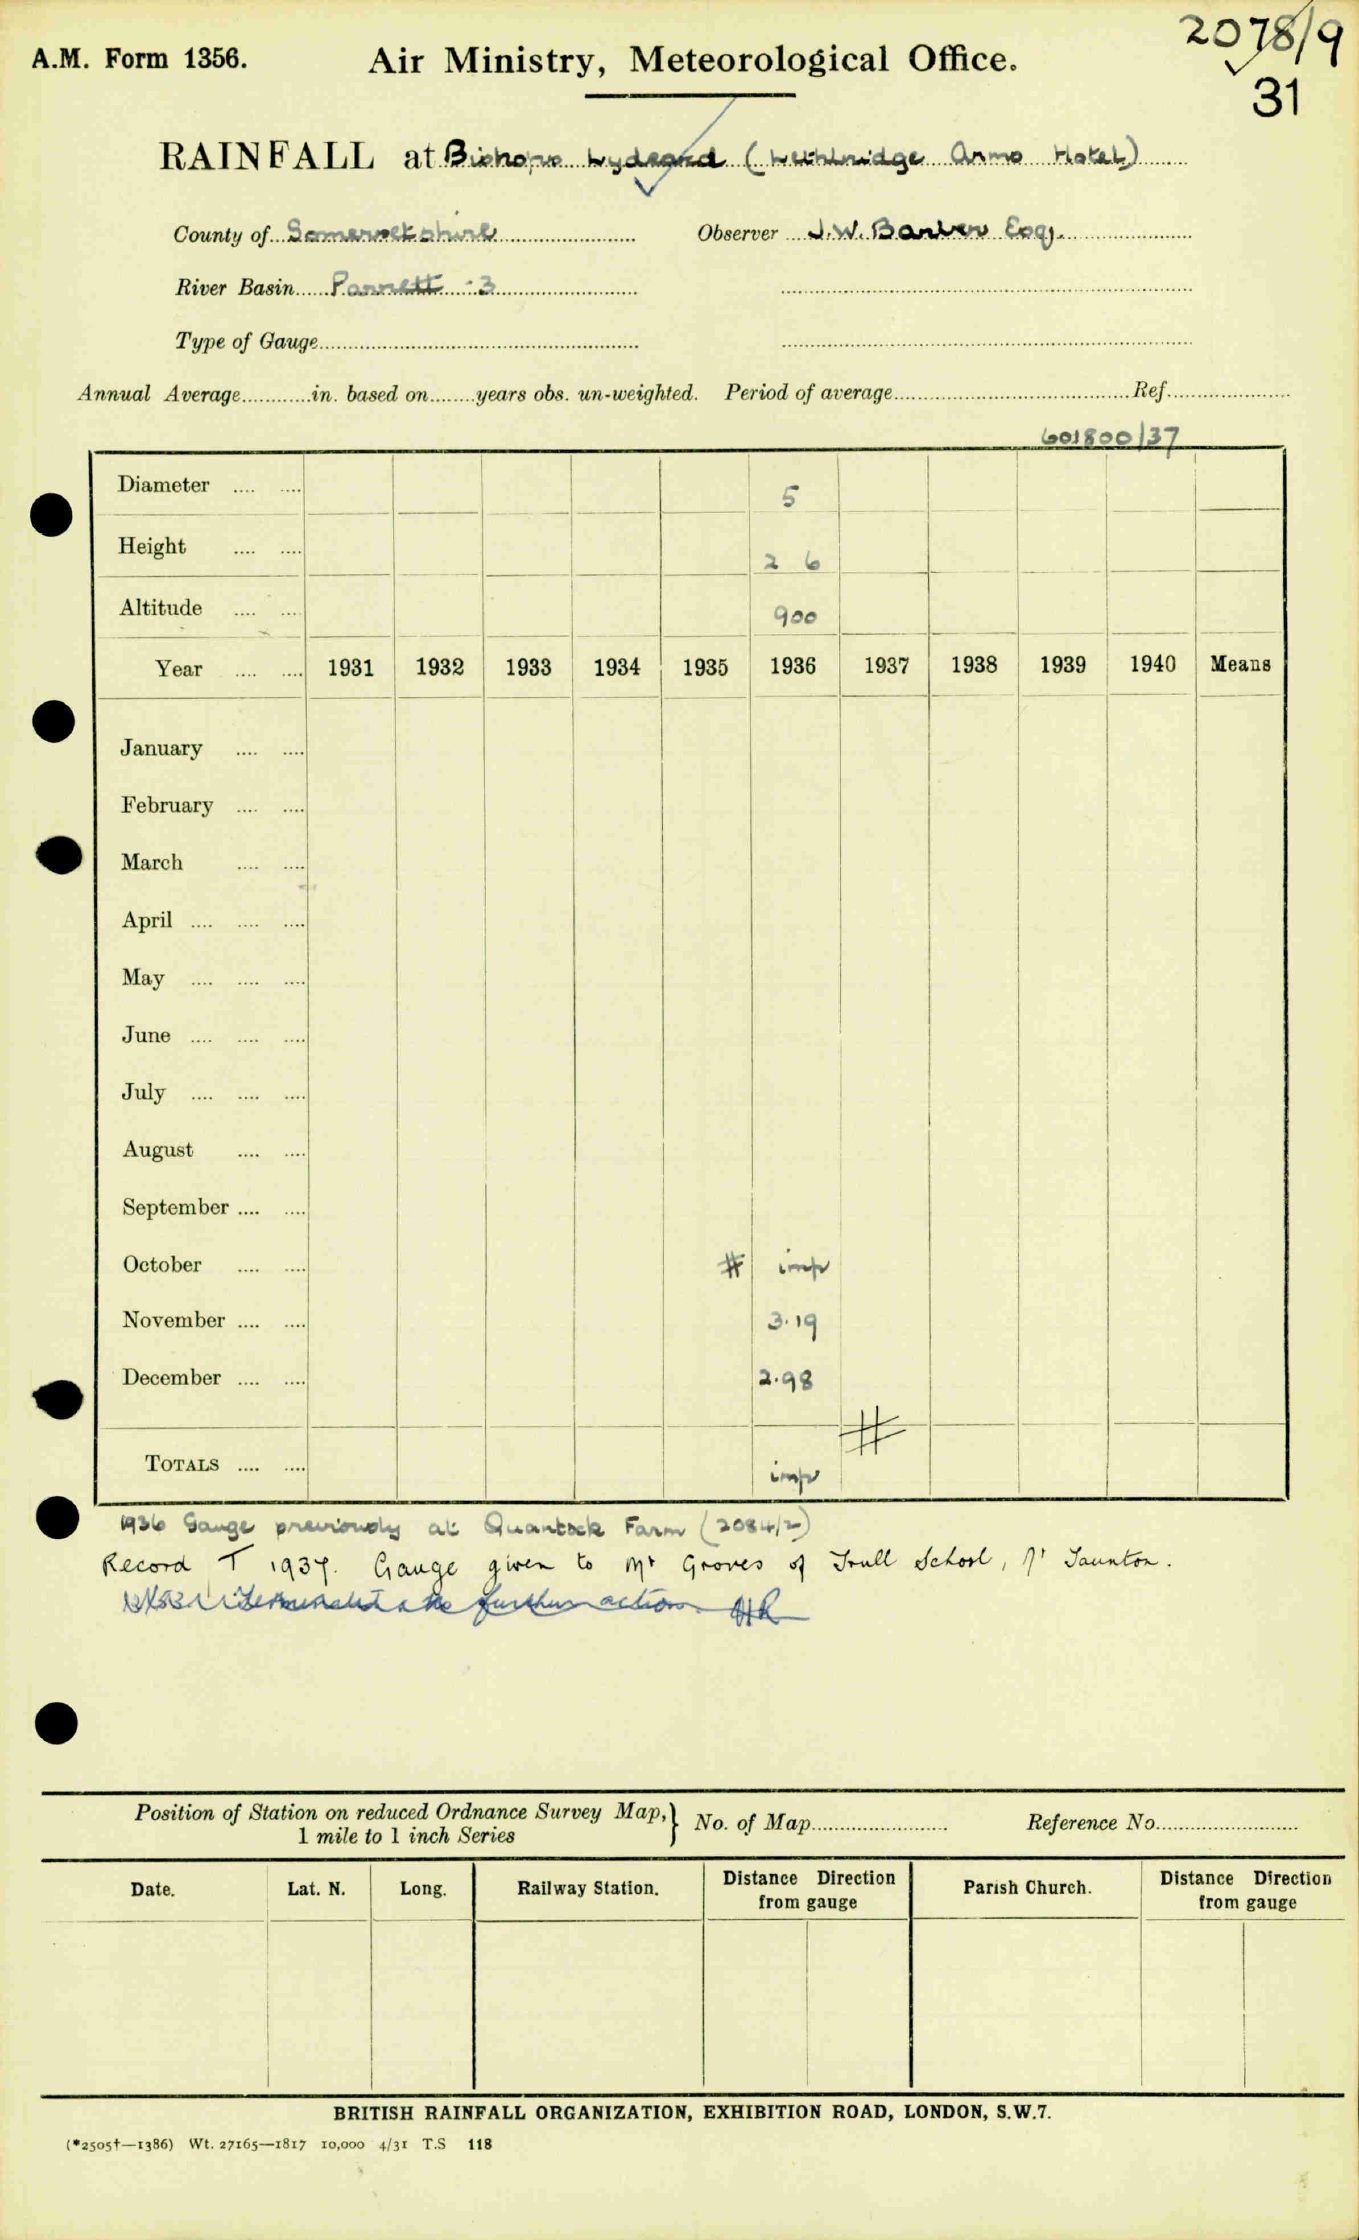 2078/9
A.M. Form 1356. Air Ministry, Meteorological Office.
31
RAINFALL at Bishops Lydeard (Lethbridge Arms Hotel)
County of Somersetshire Observer J.W. Barber Esq.
River Basin Parrett 3
Type of Gauge
Annual Average in. based on years obs. un-weighted. Period of average Ref.
601800/37
Diameter 5
Height 2 6
Altitude 900
Year 1931 1932 1933 1934 1935 1936 1937 1938 1939 1940 Means
January
February
March
April
May
June
July
August
September
October # imp
November 3.19
December 2.98
#
TOTALS imp
1936 Gauge previously at Quantock Farm (2084/2)
Record T 1937. Gauge given to Mr Groves of Trull School, Nr Taunton.
Terminated no further action.
Position of Station on reduced Ordnance Survey Map,} No. of Map Reference No.
1 mile to 1 inch Series
Date. Lat. N. Long. Railway Station. Distance Direction from gauge Parish Church. Distance Direction from gauge
BRITISH RAINFALL ORGANIZATION, EXHIBITION ROAD, LONDON, S.W.7.
(*2505†—1386) Wt. 27165—1817 10,000 4/31 T.S 118